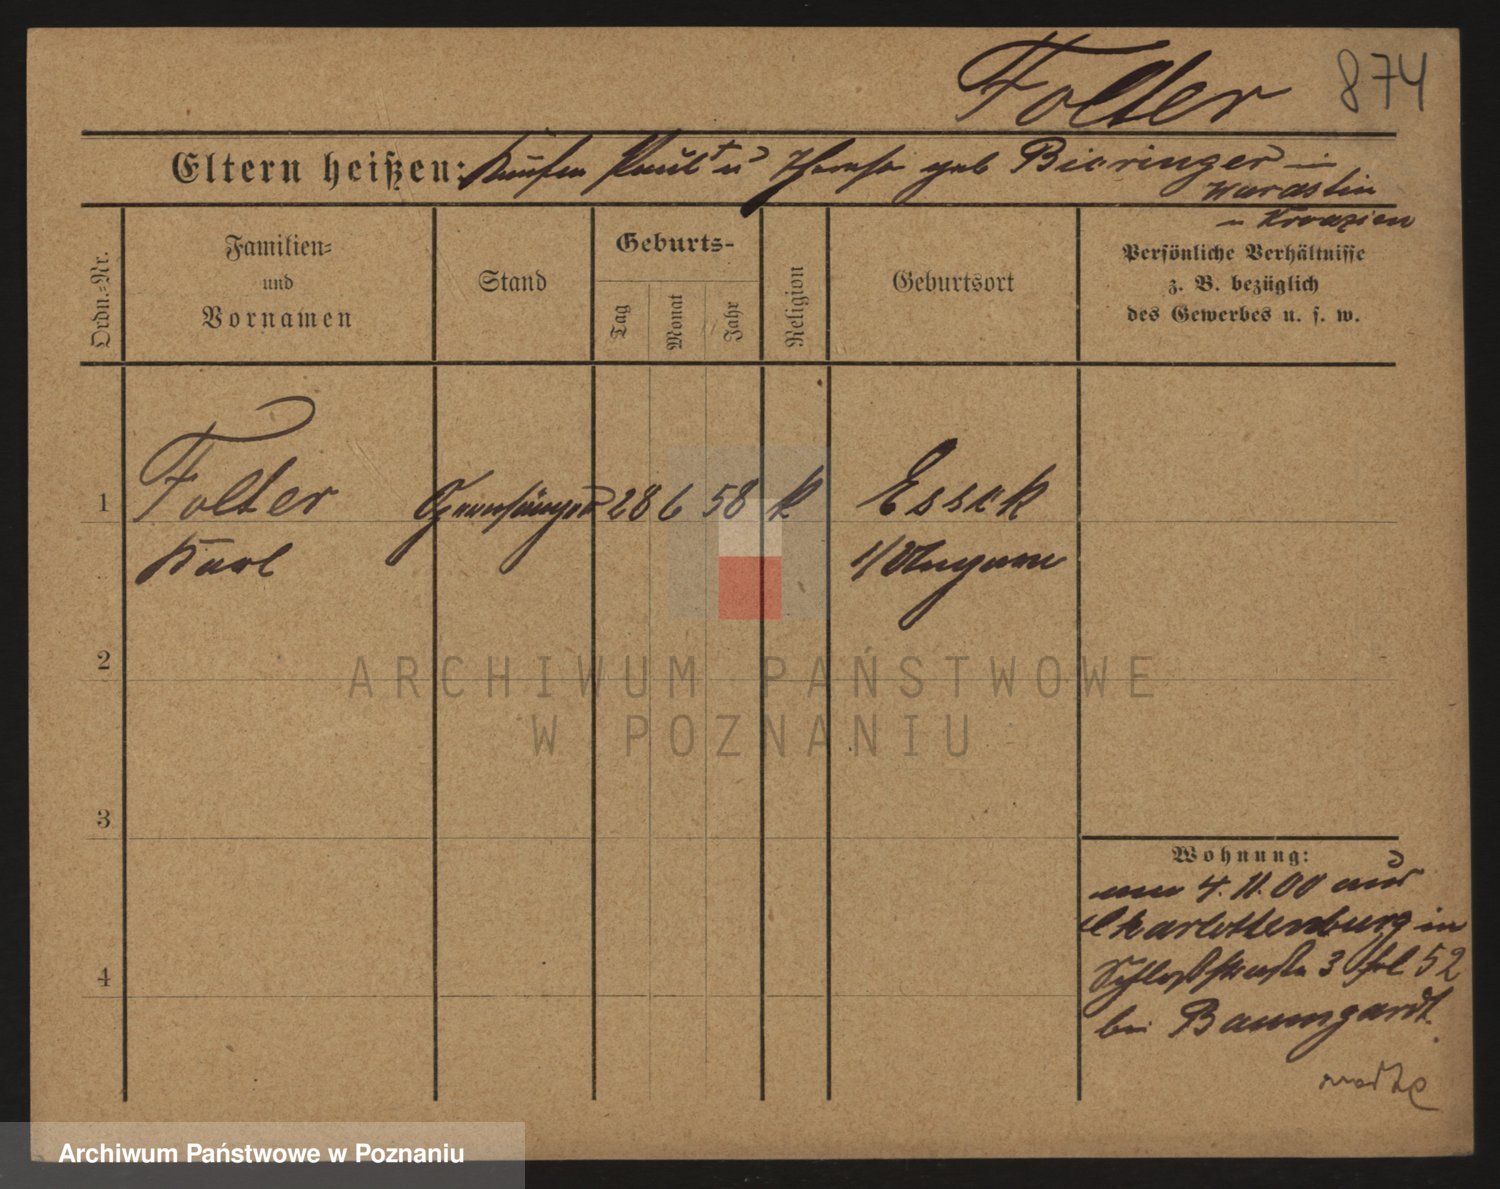 Folter 874
Eltern heißen: Kaufm Paul † u Therese geb Bieringer in
Warastin
in Kroazien
Ordn.-Nr.
Familien-
und
Vornamen
Stand
Geburts-
Tag
Monat
Jahr
Religion
Geburtsort
Persönliche Verhältnisse
z. B. bezüglich
des Gewerbes u. s. w.
1 Folter Opernsänger 28 6 58 k Essek
Karl i/Ungarn
2
3
4
Wohnung:
4. 11. 00 aus
Charlottenburg in
Schloßstraße 3 52
bei Baumgardt.
ARCHIWUM PAŃSTWOWE
W POZNANIU
Archiwum Państwowe w Poznaniu